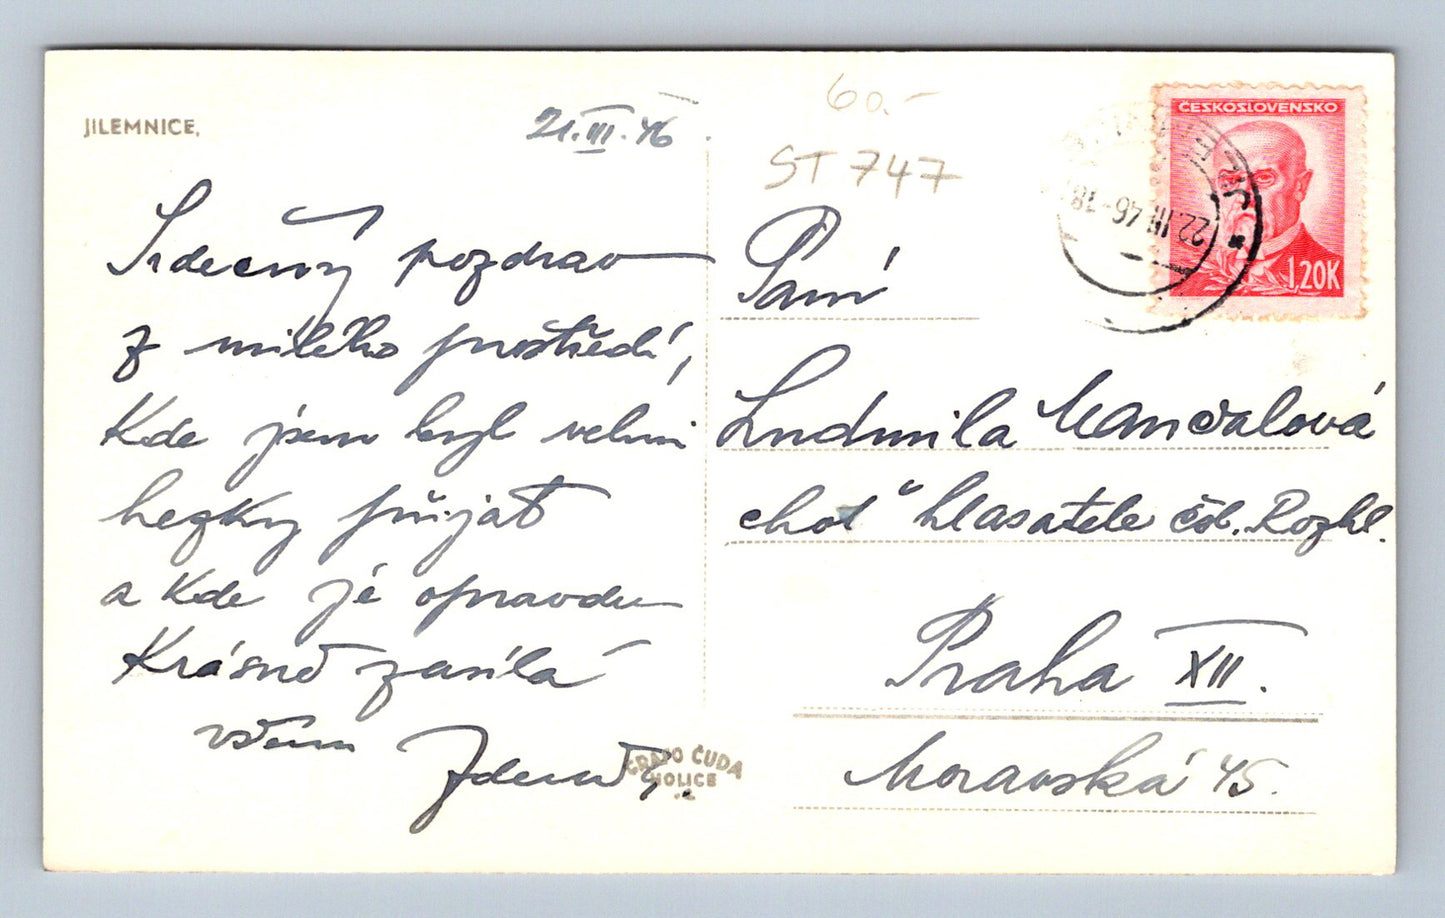 JILEMNICE,
21.III.46
60.-
ST 747
ČESKOSLOVENSKO
1,20K
22.III.46-18
Srdečný pozdrav
z milého prostředí,
kde jsem byl velmi
hezky přijat
a kde je opravdu
krásně zasílá
všem Zdeněk
GRAFO ČUDA
HOLICE
Paní
Ludmila Mančalová
choť hlasatele čsl. Rozhl.
Praha XII.
Moravská 45.